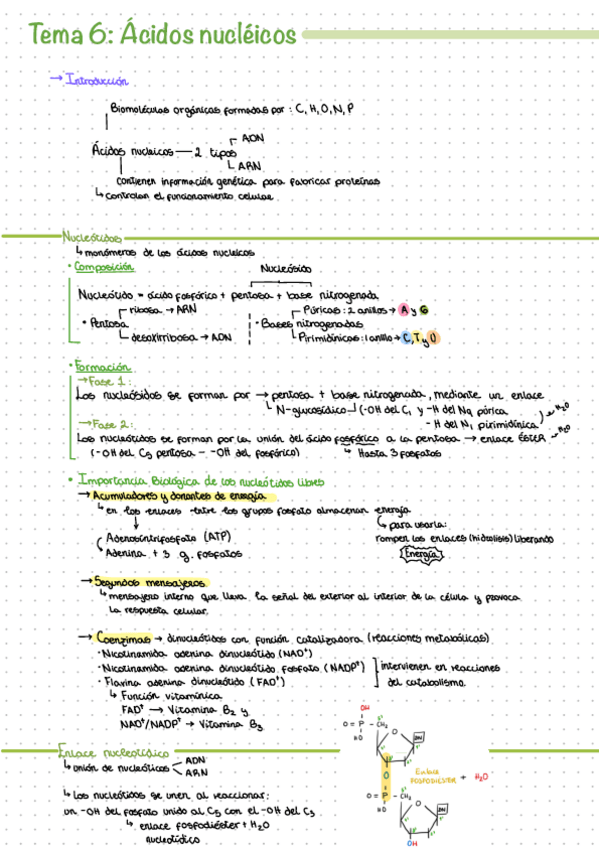 Tema 6: Ácidos nucléicos
→ Introducción
Biomoléculas orgánicas formadas por: C, H, O, N, P
Ácidos nucleicos — 2 tipos
ADN
ARN
contienen información genética para fabricar proteínas
↳ controlan el funcionamiento celular
Nucleótidos
↳ monómeros de los ácidos nucleicos
• Composición
Nucleósido
Nucleótido = ácido fosfórico + pentosa + base nitrogenada
• Pentosa
ribosa → ARN
desoxirribosa → ADN
• Bases nitrogenadas
Púricas: 2 anillos → A y G
Pirimidínicas: 1 anillo → C, T y U
• Formación
→ Fase 1:
Los nucleósidos se forman por → pentosa + base nitrogenada, mediante un enlace
N-glucosídico (-OH del C1 y -H del N9 púrica
- H del N1 pirimidínica)
H2O
→ Fase 2:
Los nucleótidos se forman por la unión del ácido fosfórico a la pentosa → enlace ÉSTER
H2O
(-OH del C5 pentosa - -OH del fosfórico)
↳ Hasta 3 fosfatos
• Importancia Biológica de los nucleótidos libres
→ Acumuladores y donantes de energía
↳ en los enlaces entre los grupos fosfato almacenan energía
↳ para usarla:
rompen los enlaces (hidrólisis) liberando
Energía
Adenosíntrifosfato (ATP)
Adenina + 3 g. fosfatos
→ Segundos mensajeros
↳ mensajero interno que lleva la señal del exterior al interior de la célula y provoca
la respuesta celular.
→ Coenzimas → dinucleótidos con función catalizadora (reacciones metabólicas)
• Nicotinamida adenina dinucleótido (NAD+)
• Nicotinamida adenina dinucleótido fosfato (NADP+)
• Flavina adenina dinucleótido (FAD+)
intervienen en reacciones
del catabolismo.
↳ Función vitamínica
FAD+ → Vitamina B2 y
NAD+/NADP+ → Vitamina B3
Enlace nucleotídico
↳ unión de nucleóticos
ADN
ARN
↳ Los nucleótidos se unen al reaccionar:
un -OH del fosfato unido al C5 con el -OH del C3
↳ enlace fosfodiéster + H2O
nucleotídico
OH
O = P - CH2
HO
O
BN
O
Enlace
FOSFODIÉSTER
+ H2O
O = P - CH2
HO
O
BN
OH